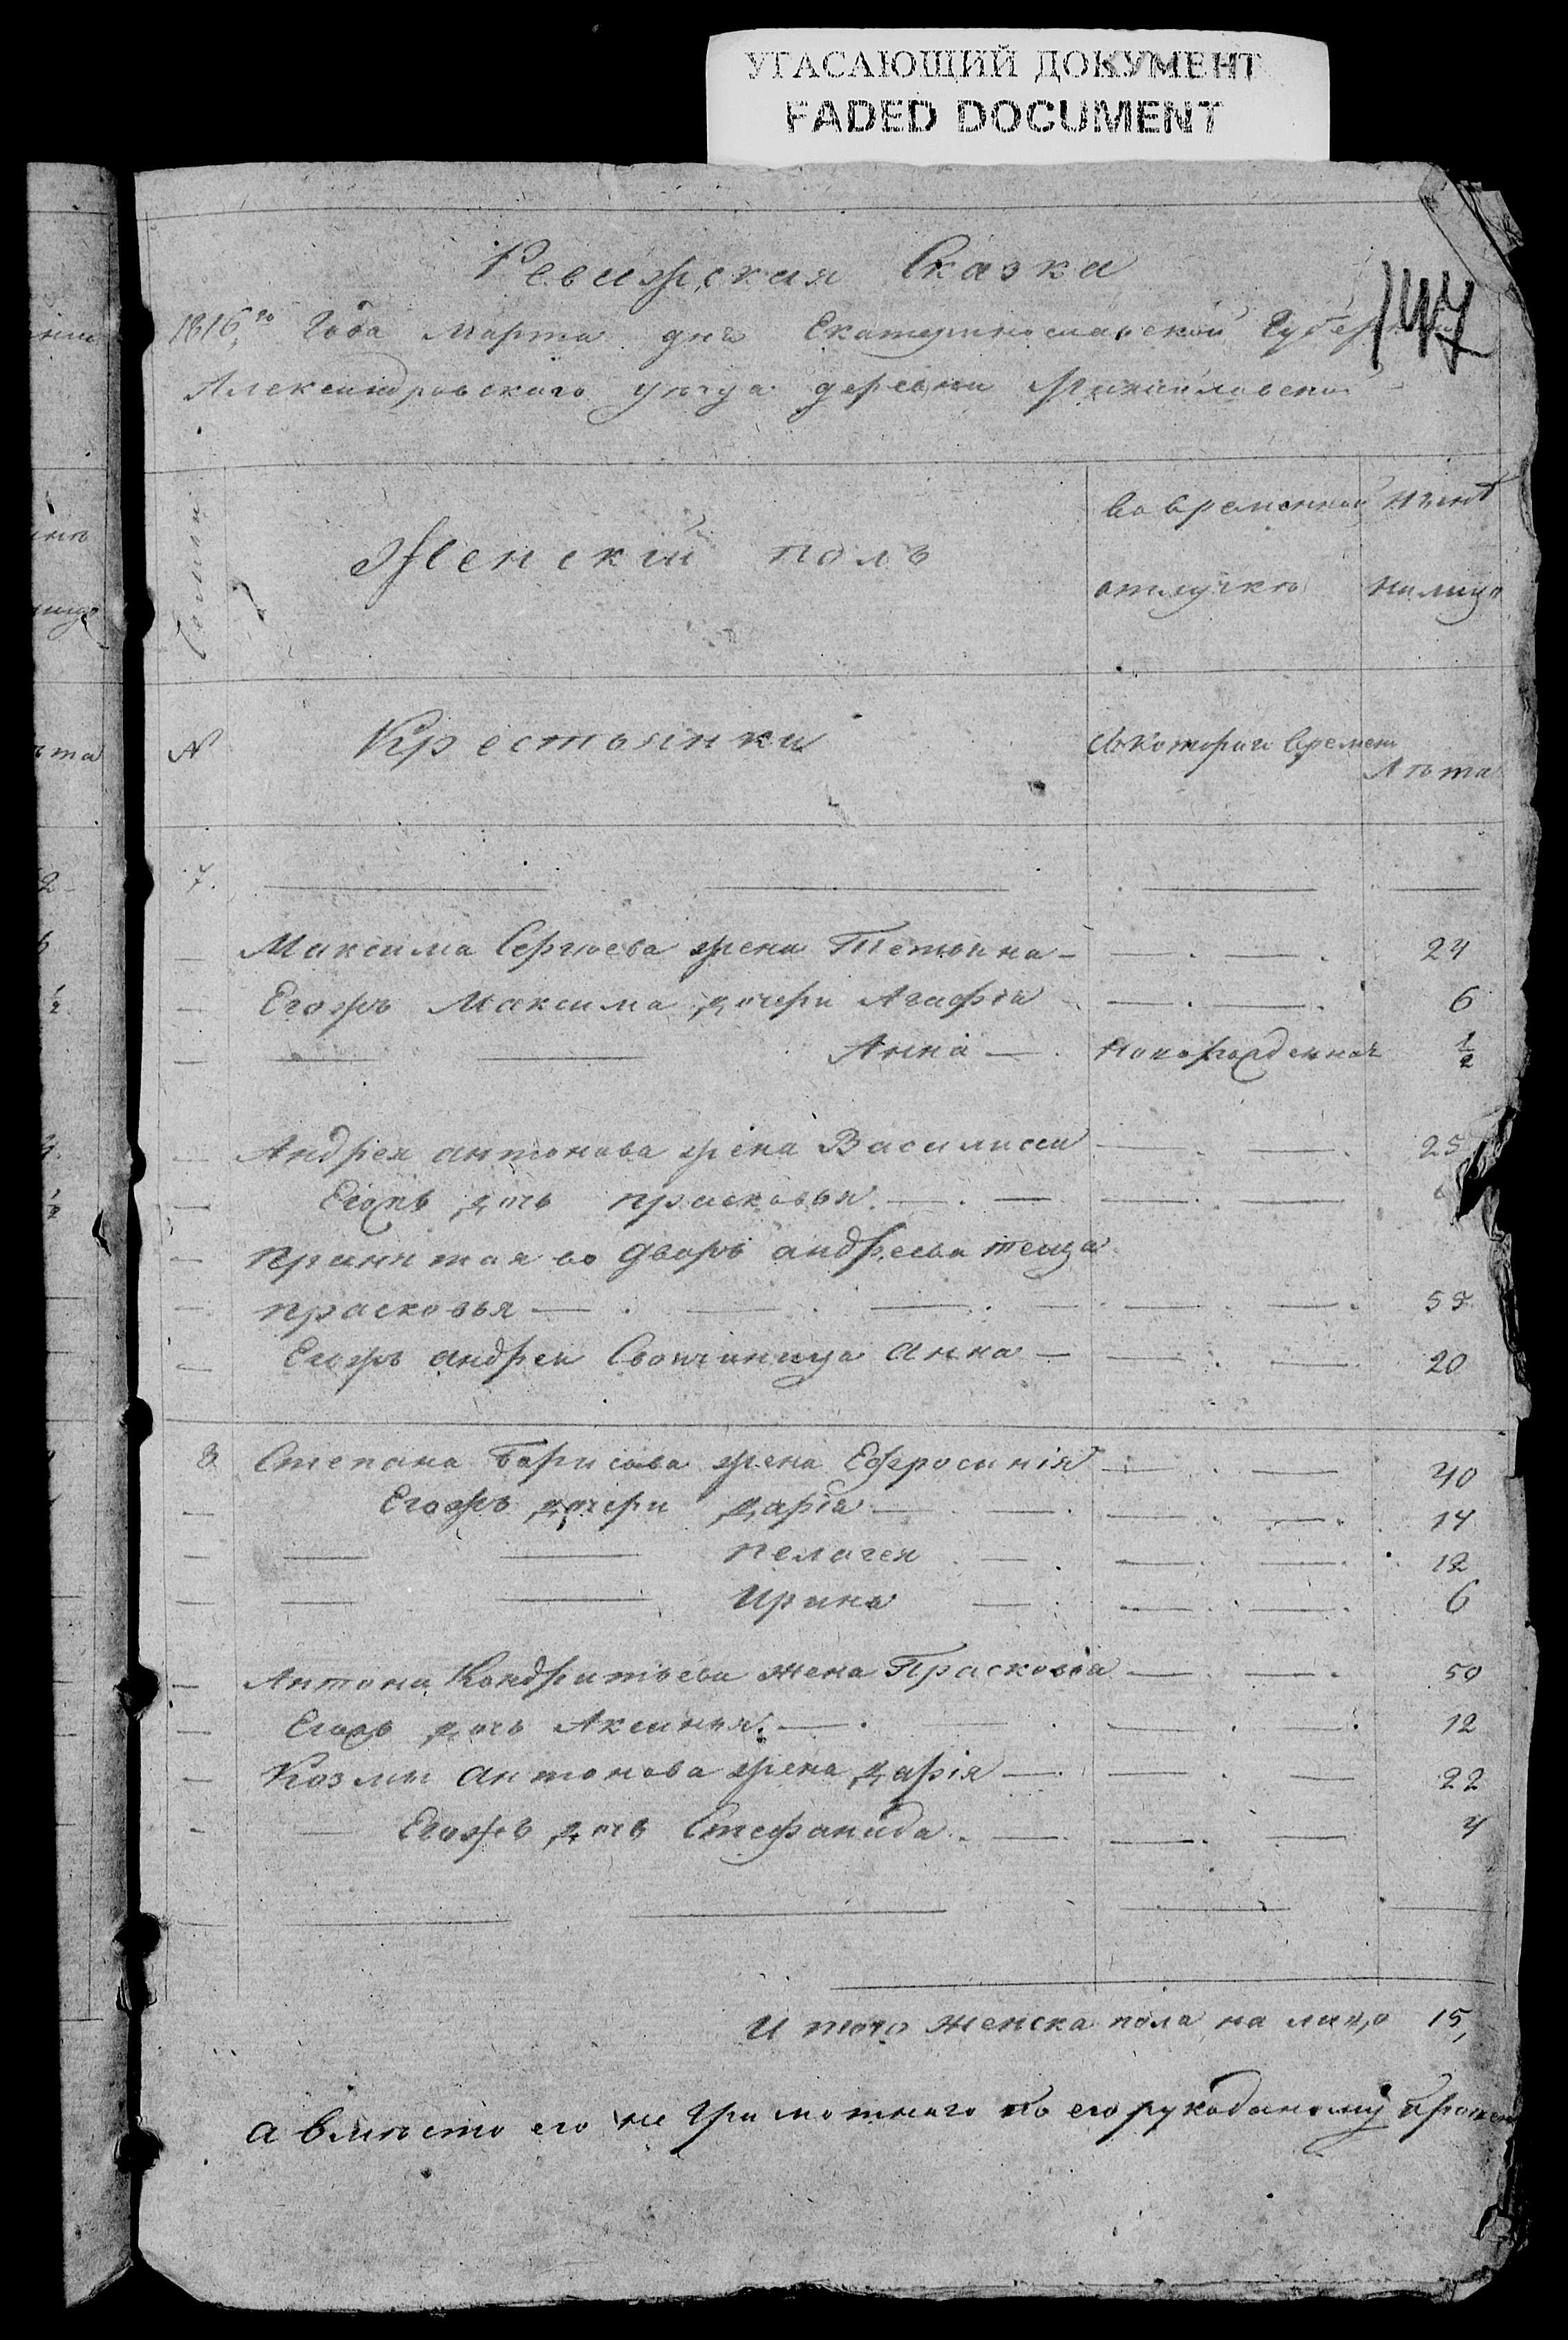 УГАСАЮЩИЙ ДОКУМЕНТ
FADED DOCUMENT
Ревижская Сказка
147
1816го Года Марта дня Екатеринославской Губернии
Александровского уезда деревни Михайловской
Семьи
Женский полъ
Во временной отлучке
Ныне на лицо
N
Крестьянки
Съ котораго времени
Лѣта
7.
Максима Сергѣева жена Тетьяна 24
Егожъ Максима дочери Агафiя 6
Анна Новорожденная 1/2
Андрея антонова жена Василиса 25
Егожъ дочь прасковья
Принятая во дворъ андреева теща
прасковья 55
Егожъ андрея Своячиница анна 20
8 Степана Борисова жена Ефросинiя 40
Егожъ дочери дарiя 14
пелагея 12
Ирина 6
Антона Кондратьева жена Прасковiя 50
Егожъ дочь Аксинья 12
Козмы антонова жена дарiя 22
Егожъ дочь Стефанида 4
И того женска пола на лицо 15,
а вместо его не Грамотнаго по его рукоданому